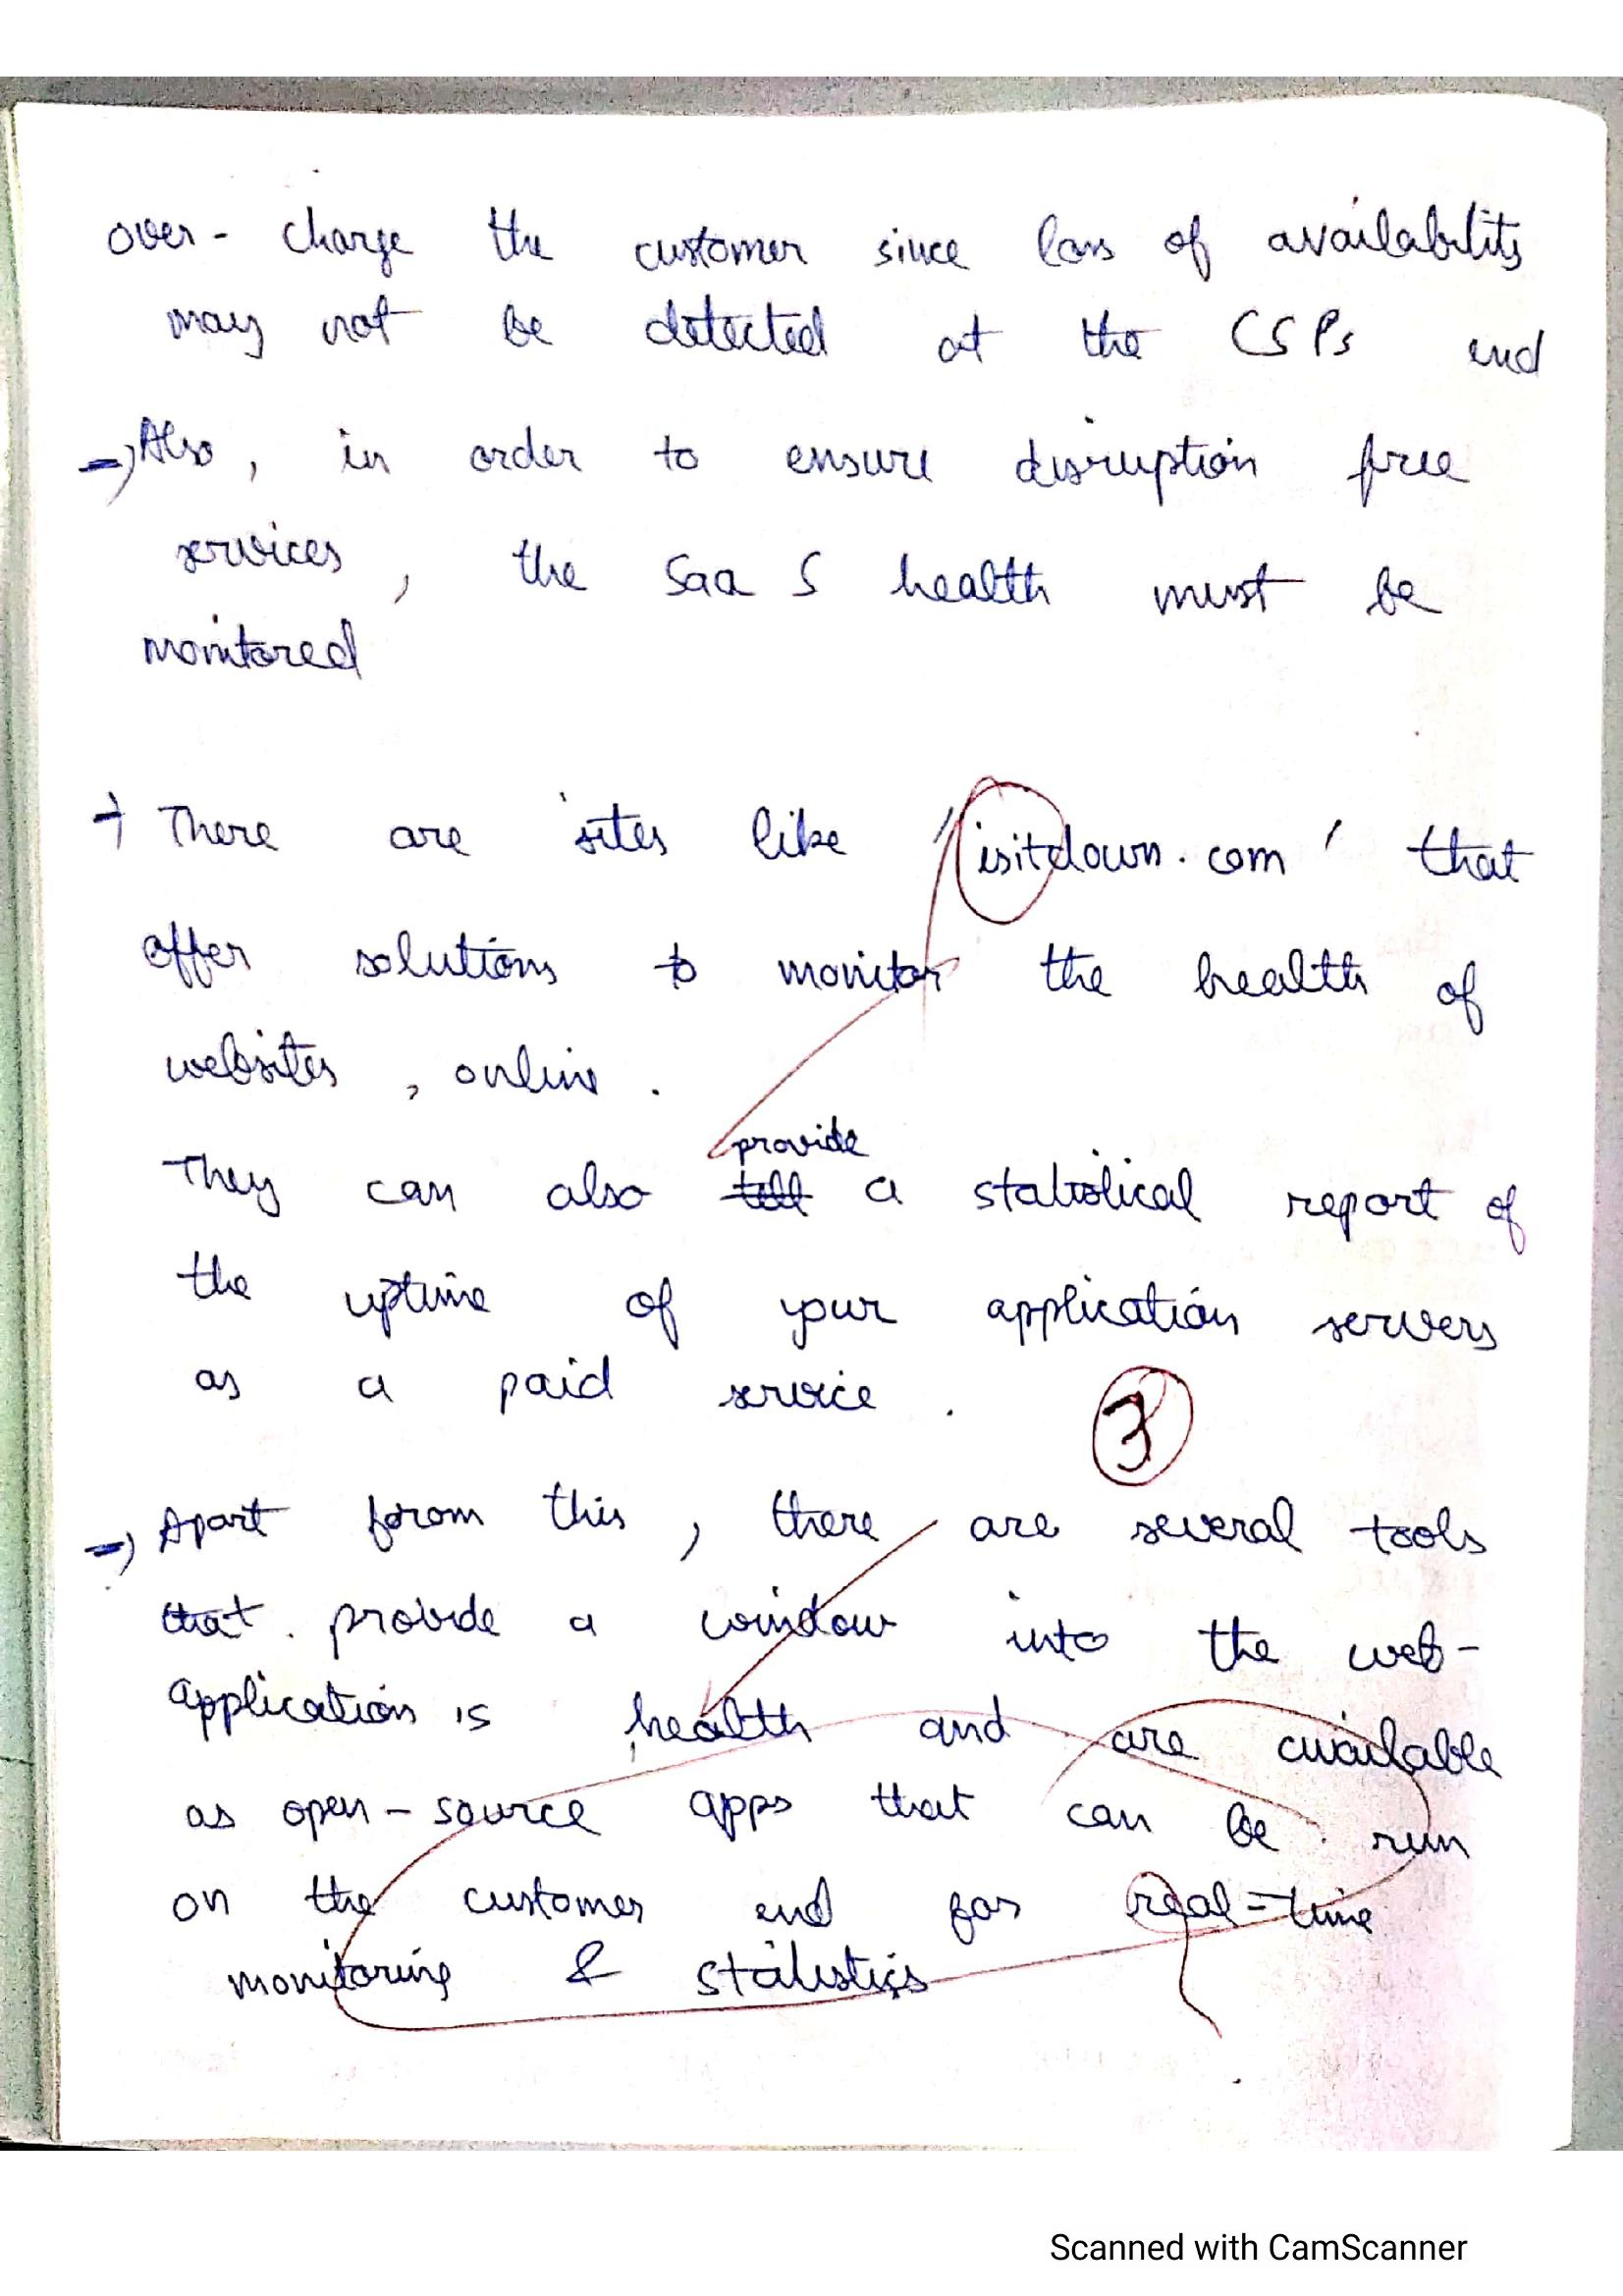 over- charge the customer since loss of availability
may not be detected at the CSPs end
→ Also, in order to ensure disruption free
services, the SaaS health must be
monitored
→ There are sites like 'isitdown.com' that
offer solutions to monitor the health of
websites, online.
provide
They can also tell a statistical report of
the uptime of your application servers
as a paid service.
3
→ Apart from this, there are several tools
that provide a window into the web-
application is health and are available
as open-source apps that can be run
on the customer end for real-time
monitoring & statistics
Scanned with CamScanner